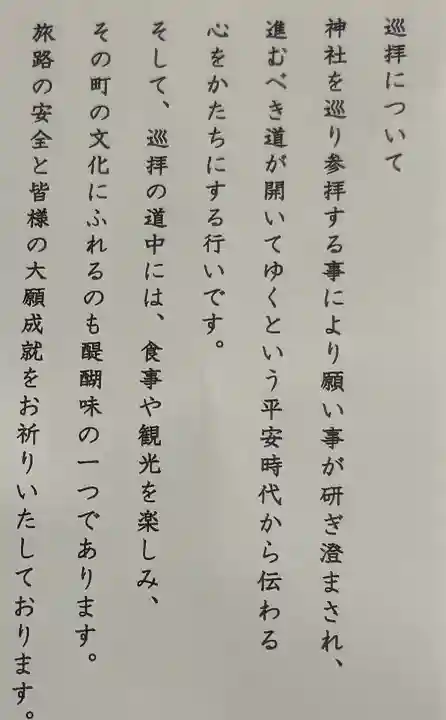 巡拝について
神社を巡り参拝する事により願い事が研ぎ澄まされ、
進むべき道が開いてゆくという平安時代から伝わる
心をかたちにする行いです。
そして、巡拝の道中には、食事や観光を楽しみ、
その町の文化にふれるのも醍醐味の一つであります。
旅路の安全と皆様の大願成就をお祈りいたしております。